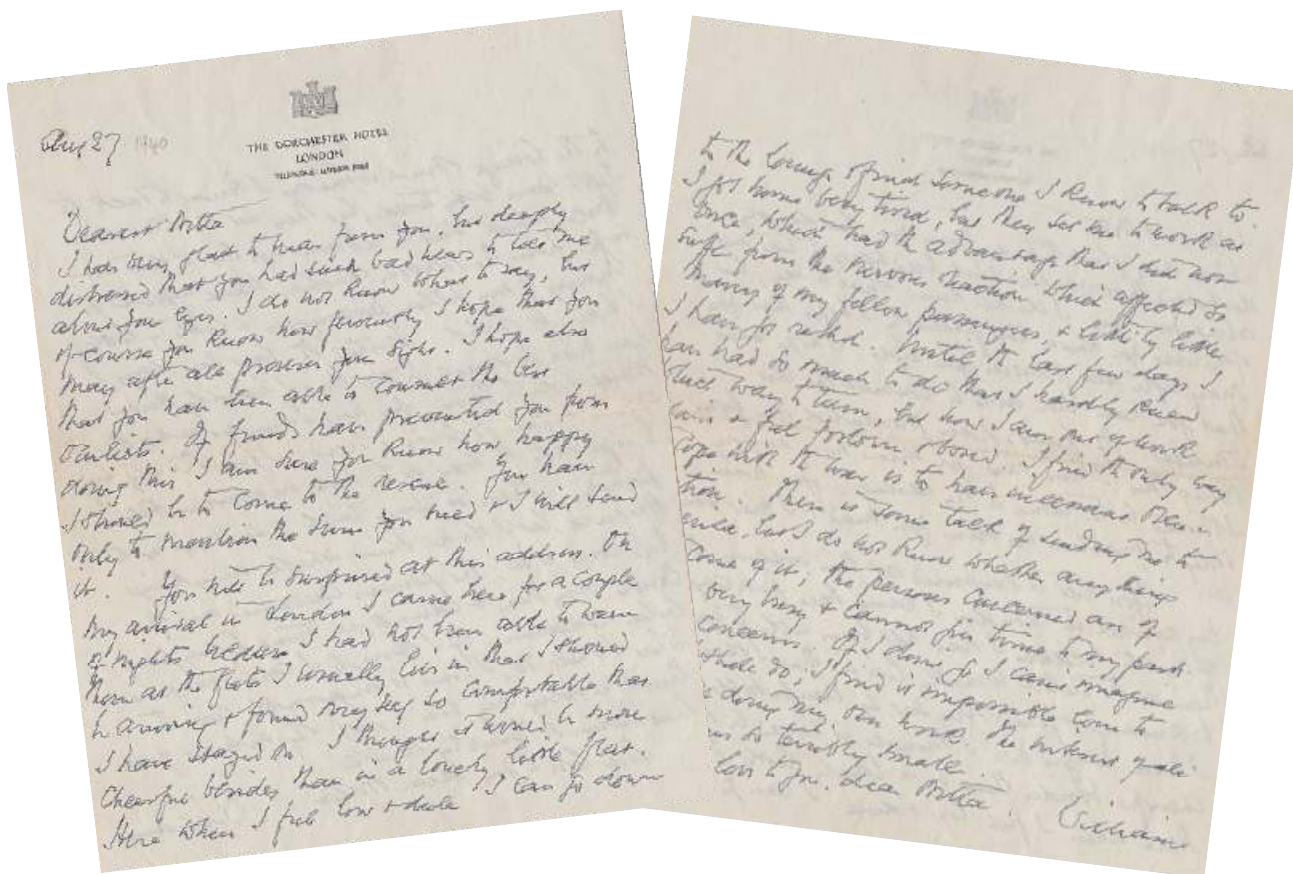 Aug 27 1940
THE DORCHESTER HOTEL
LONDON
Dearest
I was very glad to hear from you, but deeply
distressed that you had such bad news to tell me
about your eyes. I do not know what to say, but
of course you know how ferociously I hope that you
may after all preserve your sight. I hope also
that you have been able to consult the best
oculists. If funds have prevented you from
doing this I am sure you know how happy
I should be to come to the rescue. You have
only to mention the sum you need & I will send
it. You will be surprised at this address. On
my arrival in London I came here for a couple
of nights because I had not been able to warn
them at the flats I usually live in that I should
be arriving & found myself so comfortable that
I have stayed on. I thought it would be more
cheerful besides than in a lonely little flat.
Here when I feel low & dull I can go down
to the lounge & find someone I know to talk to.
I got home very tired, but they set me to work at
once, which had the advantage that I did not
suffer from the nervous reaction which affected so
many of my fellow passengers, & little by little
I have got rested. Until the last few days I
have had so much to do that I hardly knew
which way to turn, but now I am out of work
again & feel forlorn & bored. I find the only way
cope with the war is to have incessant occu-
tion. There is some talk of sending me to
but I do not know whether anything
come of it; the persons concerned are of
very busy & cannot give time to my
concerns. If I don't go I can't imagine
shall do; I find it impossible to
doing my own work. The
so terribly small.
love to you, dear
William